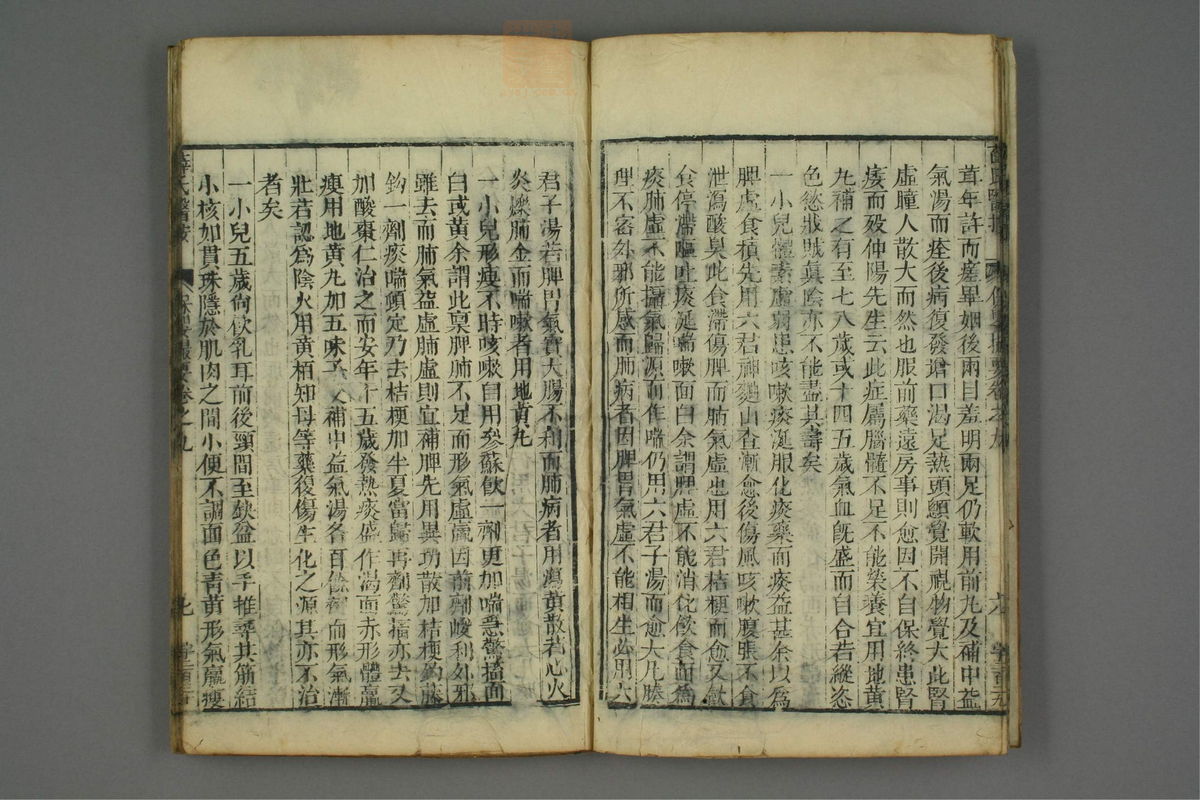 茸年許而瘥畢姻後兩目羞明兩足仍軟用前丸及補中益
氣湯而痊後病復發瘡口渴足熱頭顱覺開視物覺大此腎
虛瞳人散大而然也服前藥遠房事則愈因不自保終患腎
痿而歿仲陽先生云此症屬腦髓不足不能榮養宜用地黃
丸補之有至七八歲或十四五歲氣血旣盛而自合若縱恣
色慾戕賊眞陰亦不能盡其壽矣
一小兒體素虛弱患咳嗽痰涎服化痰藥而痰益甚余以爲
脾虛食積先用六君神麯山查漸愈後傷風咳嗽腹脹不食
泄瀉酸臭此食滯傷脾而肺氣虛也用六君桔梗而愈又飮
食停滯嘔吐痰涎喘嗽面白余謂脾虛不能消化飮食而爲
痰肺虛不能攝氣歸源而作喘仍用六君子湯而愈大凡腠
理不密外邪所感而肺病者因脾胃氣虛不能相生必用六
君子湯若脾胃氣實大腸不利而肺病者用瀉黃散若心火
炎爍肺金而喘嗽者用地黃丸
一小兒形瘦不時咳嗽自用參蘇飮一劑更加喘急驚搐面
白或黃余謂此稟脾肺不足而形氣虛羸因前劑峻利外邪
雖去而肺氣益虛肺虛則宜補脾先用異功散加桔梗鈎藤
鈎一劑痰喘頓定乃去桔梗加半夏當歸再劑驚搐亦去又
加酸棗仁治之而安年十五歲發熱痰盛作渴面赤形體羸
瘦用地黃丸加五味子又補中益氣湯各百餘劑而形氣漸
壯若認爲陰火用黃栢知母等藥復傷生化之源其亦不治
者矣
一小兒五歲尙飮乳耳前後頸間至缺盆以手推尋其筋結
小核如貫珠隱於肌肉之間小便不調面色靑黃形氣羸瘦
薛氏醫按
保嬰撮要卷之九
九